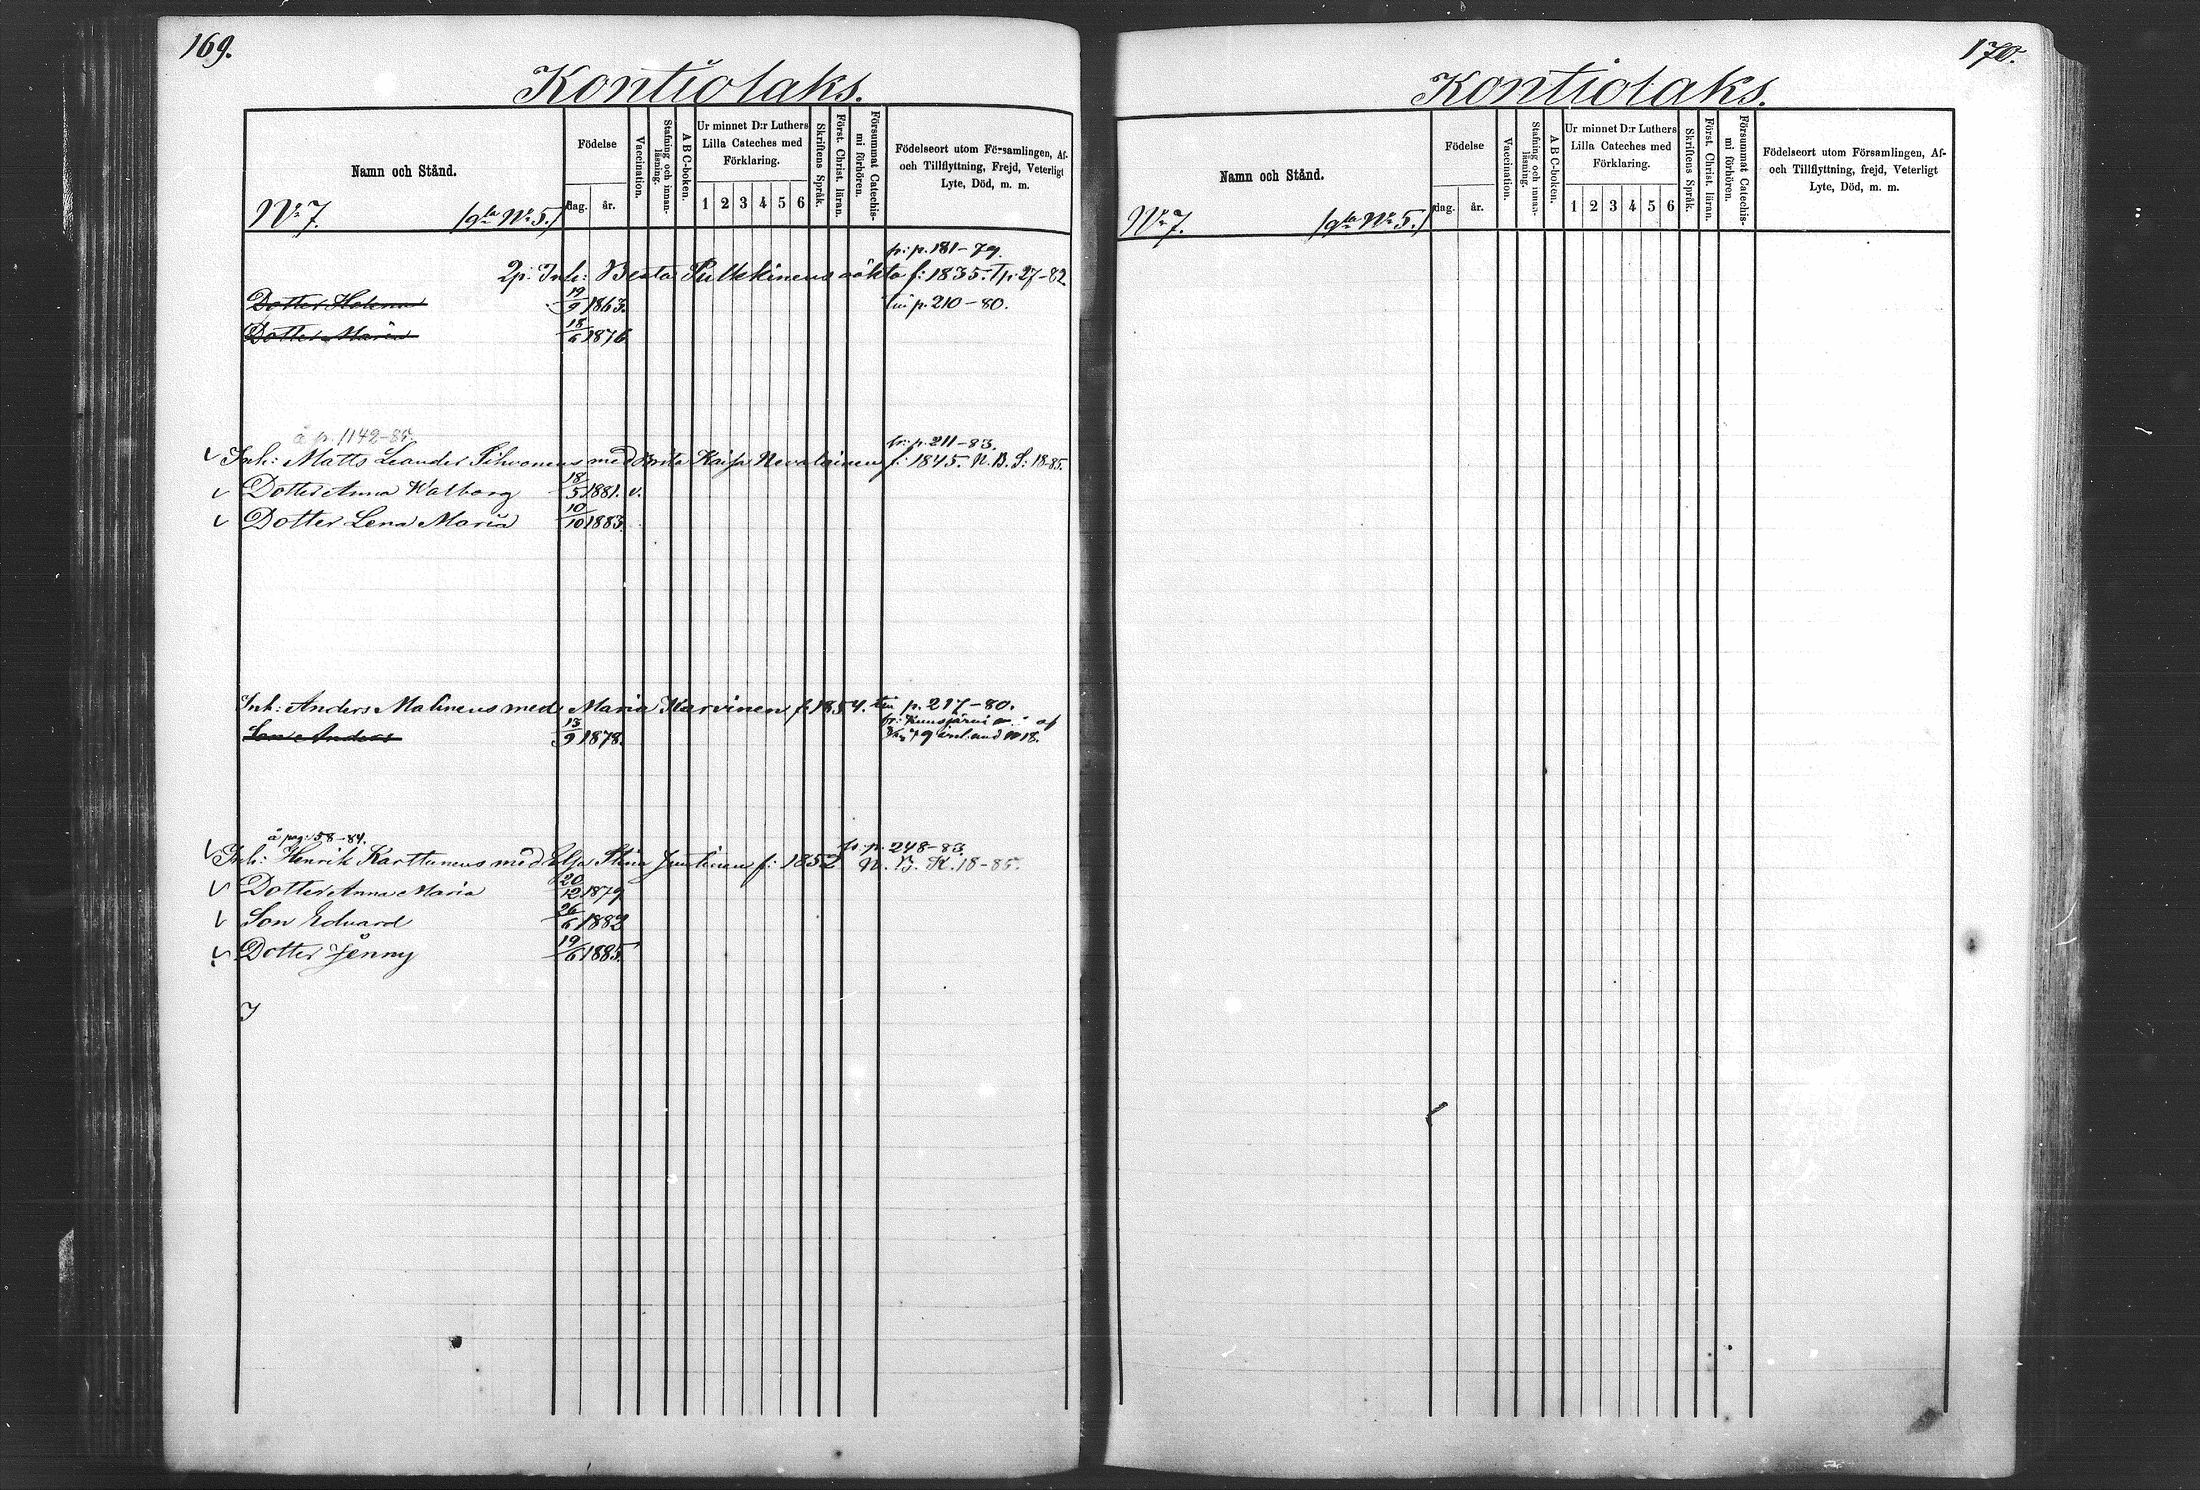 169.
Kontiolaks.
Namn och Stånd.
Födelse
dag. år.
Vaccination.
Stafning och innan-läsning.
A B C-boken.
Ur minnet D:r Luthers
Lilla Cateches med
Förklaring.
1 2 3 4 5 6
Skriftens Språk.
Först. Christ. läran.
Försummat Catechis-mi förhören.
Födelseort utom Församlingen, Af-
och Tillflyttning, Frejd, Veterligt
Lyte, Död, m. m.
N:o 7. /g:la N:o 5./
fr: p. 181-79.
Inh: Beata Pulkkinens oäkta f: 1835. p: 27-82
Dotter Helena 19/9 1863. p. 210-80.
Dotter Maria 18/6 1876
å p. 1142-85.
fr: p. 211-83.
Inh: Matts Leander Sihvonens med Brita Kaisa Nevalainen f: 1845. N. B. S: 18-85.
Dotter Anna Walborg 18/5 1881. v.
Dotter Lena Maria 10/10 1883.
Inh: Anders Malinens med Maria Karvinen f. 1854. p. 217-80.
Son Anders 13/9 1878.
å pag: 58-84.
fr: p. 248-83.
Inh: Henrik Karttunens med Elsa Stina Juntinen f: 1852 N. B. K. 18-85.
Dotter Anna Maria 20/12 1879
Son Edvard 26/6 1882
Dotter Jenny 19/6 1885.
170.
Kontiolaks.
Namn och Stånd.
Födelse
dag. år.
Vaccination.
Stafning och innan-läsning.
A B C-boken.
Ur minnet D:r Luthers
Lilla Cateches med
Förklaring.
1 2 3 4 5 6
Skriftens Språk.
Först. Christ. läran.
Försummat Catechis-mi förhören.
Födelseort utom Församlingen, Af-
och Tillflyttning, frejd, Veterligt
Lyte, Död, m. m.
N:o 7. /g:la N:o 5./